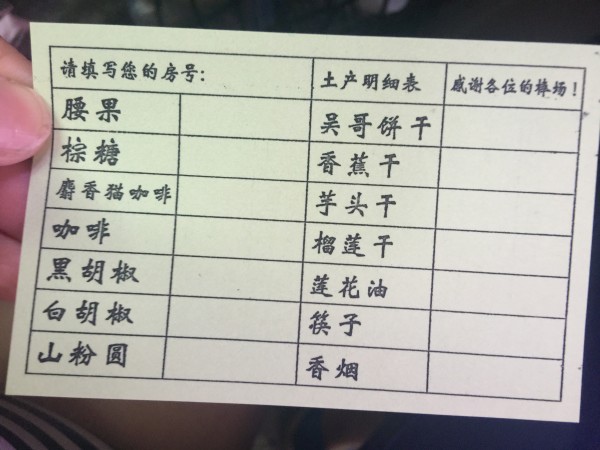 请填写您的房号: 土产明细表 感谢各位的棒场!
腰果 吴哥饼干
棕糖 香蕉干
麝香猫咖啡 芋头干
咖啡 榴莲干
黑胡椒 莲花油
白胡椒 筷子
山粉圆 香烟